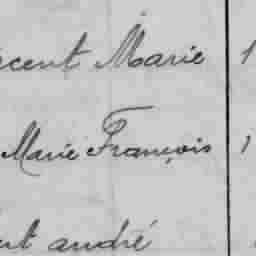 Marie 1
Marie François 1
andré